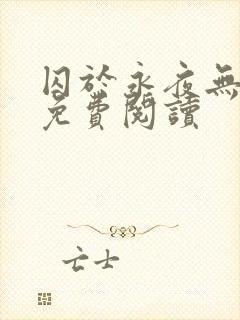 囚於永夜無
免費閱讀
亡士